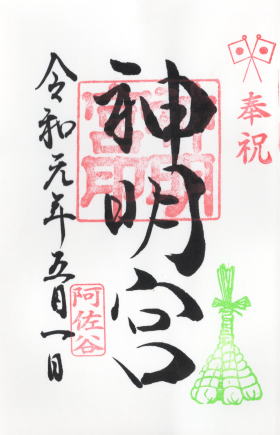 奉祝
神明宮
神明
宮印
令和元年五月一日
阿佐谷